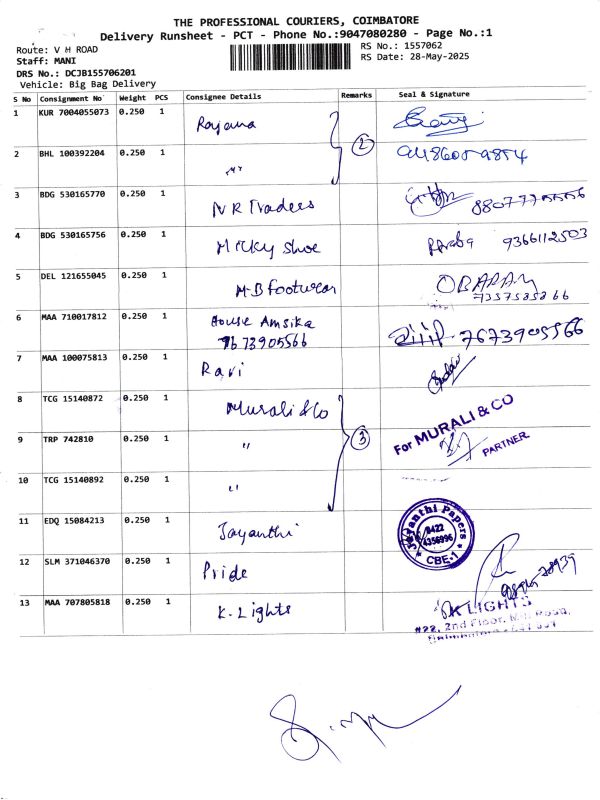 THE PROFESSIONAL COURIERS, COIMBATORE
Delivery Runsheet - PCT - Phone No.:9047080280 - Page No.:1
Route: V H ROAD
RS No.: 1557062
Staff: MANI
RS Date: 28-May-2025
DRS No.: DCJB155706201
Vehicle: Big Bag Delivery
S No Consignment No Weight PCS Consignee Details Remarks Seal & Signature
1 KUR 7004055073 0.250 1 Rajama 2
2 BHL 100392204 0.250 1 "
3 BDG 530165770 0.250 1 N R Traders
4 BDG 530165756 0.250 1 Micky Shoe 9366112503
5 DEL 121655045 0.250 1 M.B footwear
6 MAA 710017812 0.250 1 House Amsika 7673905566 7673905566
7 MAA 100075813 0.250 1 Ravi
8 TCG 15140872 0.250 1 Murali & Co For MURALI & CO
9 TRP 742810 0.250 1 " 3 PARTNER.
10 TCG 15140892 0.250 1 "
11 EDQ 15084213 0.250 1 Jayanthi Jayanthi Papers 0422 4356996 CBE-1
12 SLM 371046370 0.250 1 Pride
13 MAA 707805818 0.250 1 K. Lights K LIGHTS
#22, 2nd Floor,